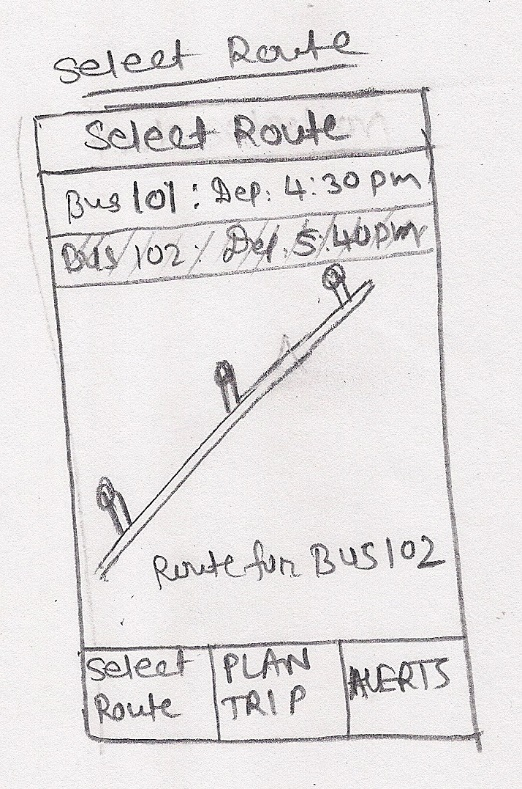 Select Route
Select Route
Bus 101: Dep: 4:30 pm
Bus 102: Dep. 5:40pm
Route for BUS 102
Select Route
PLAN TRIP
ALERTS